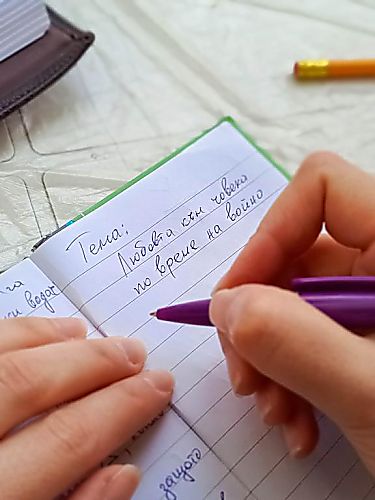 Тема:
Любовта към човека
по време на война
защото